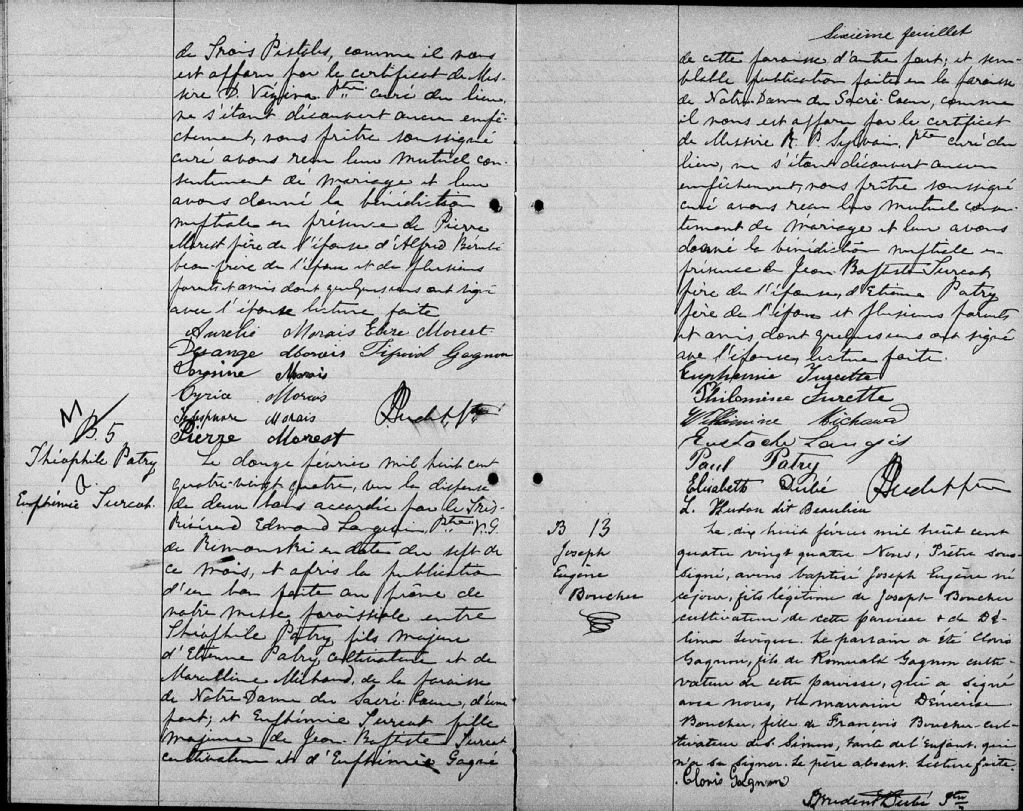 de Trois Pistoles, comme il nous
est apparu par le certificat de Mes-
sire D. Vézina Ptre curé du lieu,
ne s'étant découvert aucun empê-
chement, nous prêtre soussigné
curé avons reçu leur mutuel con-
sentement de mariage et leur
avons donné la bénédiction
nuptiale en présence de Pierre
Morest père de l'épouse d'Alfred
beau-frère de l'épouse et de plusieurs
parents et amis dont quelques uns ont signé
avec l'épouse lecture faite
Aurelie Morais Morest
Desange Morais Gagnon
Morais
Cyrice Morais
Telesphore Morais
Pierre Morest
M 5
Théophile Patry
&
Euphémie Turcot.
Le douze février mil huit cent
quatre-vingt quatre, vu la dispense
de deux bans accordée par le Très-
Révérend Edmond Langevin Ptre V.G.
de Rimouski en date du sept de
ce mois, et après la publication
d'un ban faite au prône de
notre messe paroissiale entre
Théophile Patry fils majeur
d'Etienne Patry cultivateur et de
Marcelline Michaud, de la paroisse
de Notre Dame du Sacré Coeur, d'une
part; et Euphémie Turcot fille
majeure de Jean Baptiste Turcot
cultivateur et d'Euphémie Gagné
Sixième feuillet
de cette paroisse d'autre part; et sem-
blable publication faite en la paroisse
de Notre-Dame du Sacré-Coeur, comme
il nous est apparu par le certificat
de Messire R. P. Sylvain, Ptre curé du
lieu, ne s'étant découvert aucun
empêchement, nous prêtre soussigné
curé avons reçu leur mutuel consen-
tement de mariage et leur avons
donné la bénédiction nuptiale en
présence de Jean Baptiste Turcot,
père de l'épouse, d'Etienne Patry
père de l'époux et plusieurs parents
et amis dont quelques uns ont signé
avec l'épouse, lecture faite.
Euphemie Turcotte
Philomène Turcotte
Michaud
Eustache Langis
Paul Patry
Elisabeth Dubé
L. Hudon dit Beaulieu
B 13
Joseph
Eugène
Boucher
Le dix huit février mil huit cent
quatre vingt quatre Nous, Prêtre sous-
signé, avons baptisé Joseph Eugène né
ce jour, fils légitime de Joseph Boucher
cultivateur de cette paroisse & de Dé-
lima Levêque. Le parrain a été Clovis
Gagnon, fils de Romuald Gagnon culti-
vateur de cette paroisse, qui a signé
avec nous, & la marraine Démerise
Boucher, fille de François Boucher cul-
tivateur de S. Simon, tante de l'Enfant qui
n'a su signer. Le père absent. Lecture faite.
Clovis Gagnon
Prudent Dubé Ptre